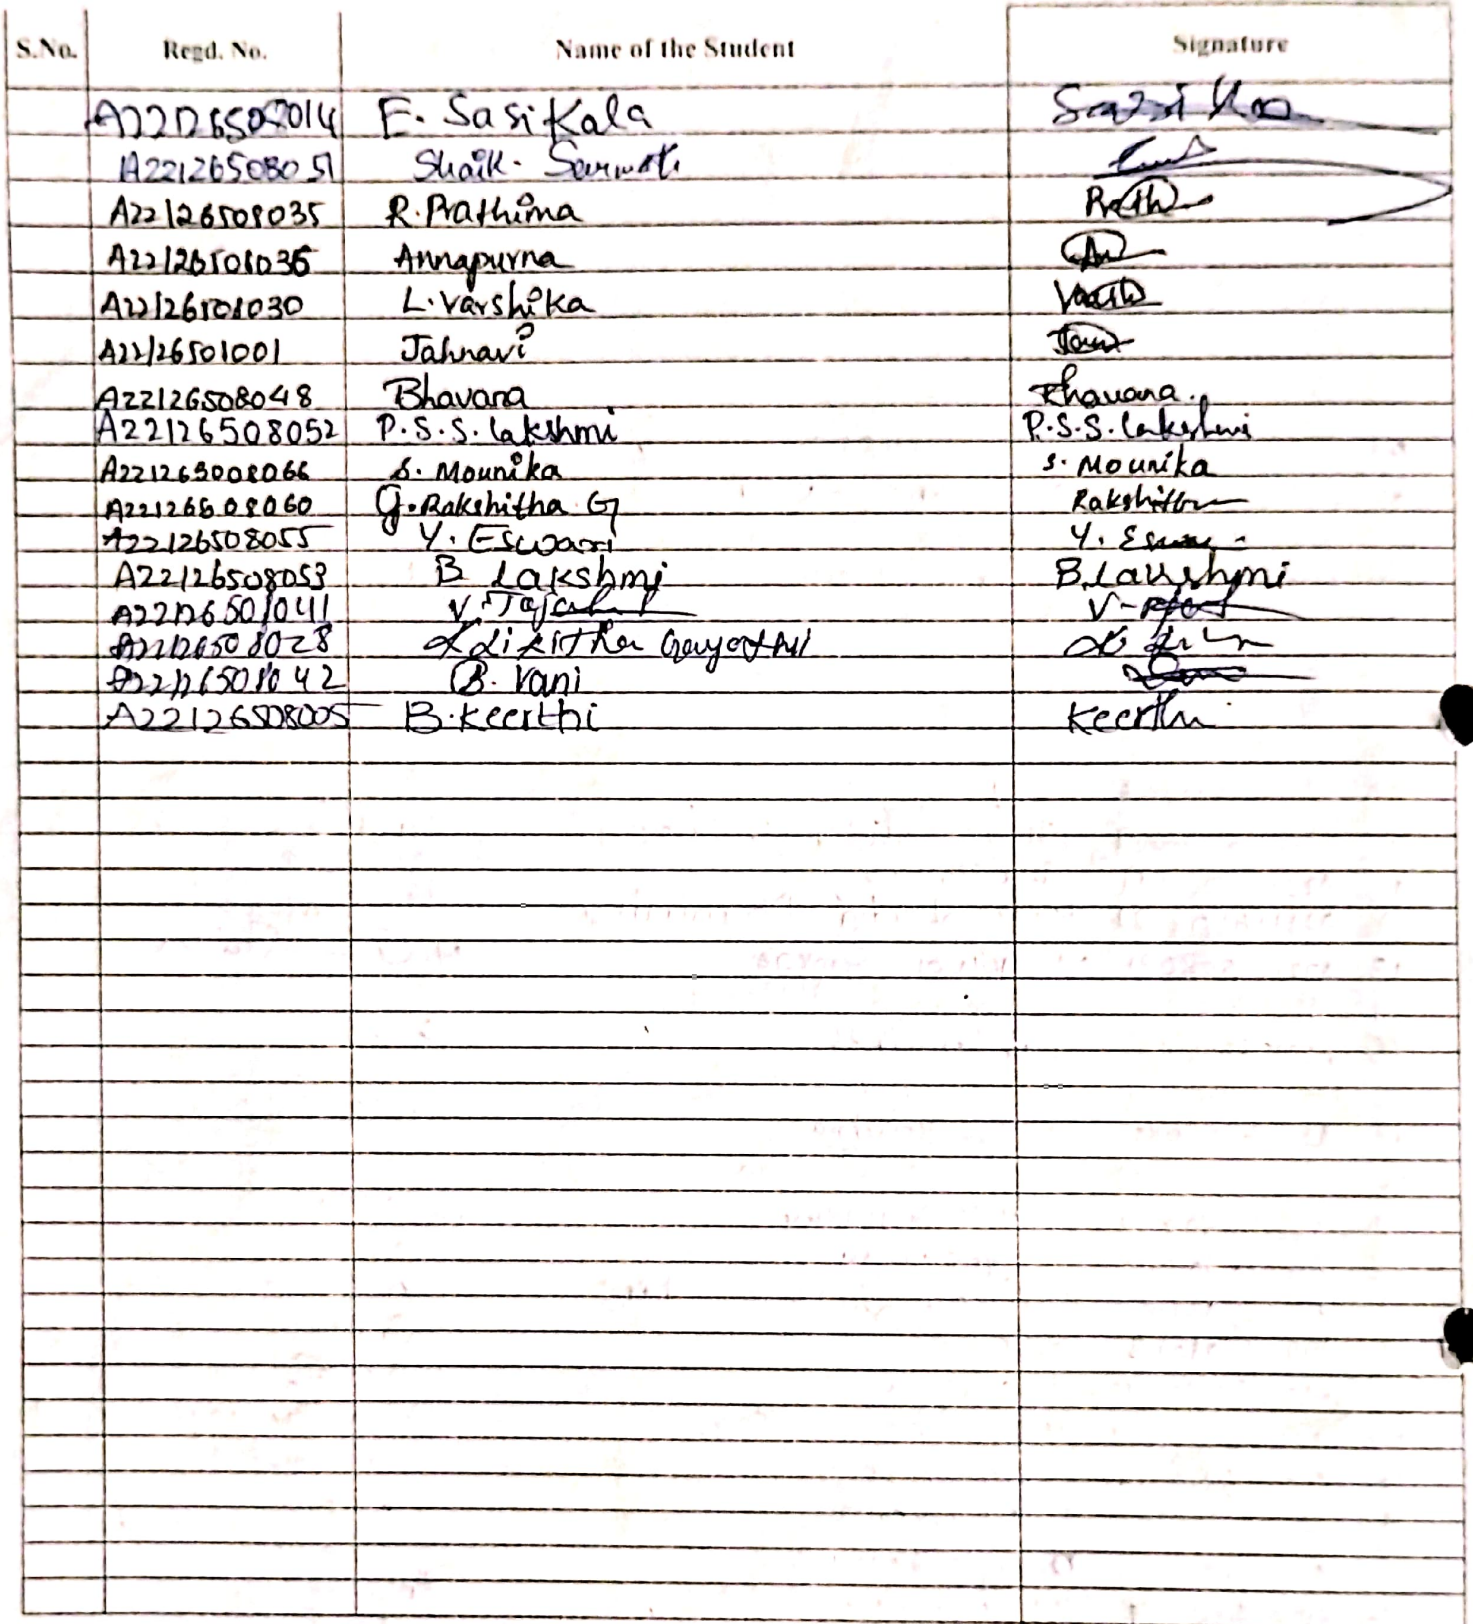 S.No. Regd. No. Name of the Student Signature
A22126508014 E. SasiKala
A22126508051 Shaik.
A22126508035 R.Prathima
A22126508036 Annapurna
A22126508030 L.Varshika
A22126508001 Jahnavi
A22126508048 Bhavana Bhavana.
A22126508052 P.S.S.lakshmi P.S.S.lakshmi
A22126508066 S. Mounika S. Mounika
A22126508060 G.Rakshitha G Rakshitha
A22126508055 Y. Eswari Y.
A22126508053 B Lakshmi B.Lakshmi
A22126508041 V.
A22126508028 Likitha Gayathri
A22126508042 B. Vani
A22126508005 B.Keerthi Keerthi